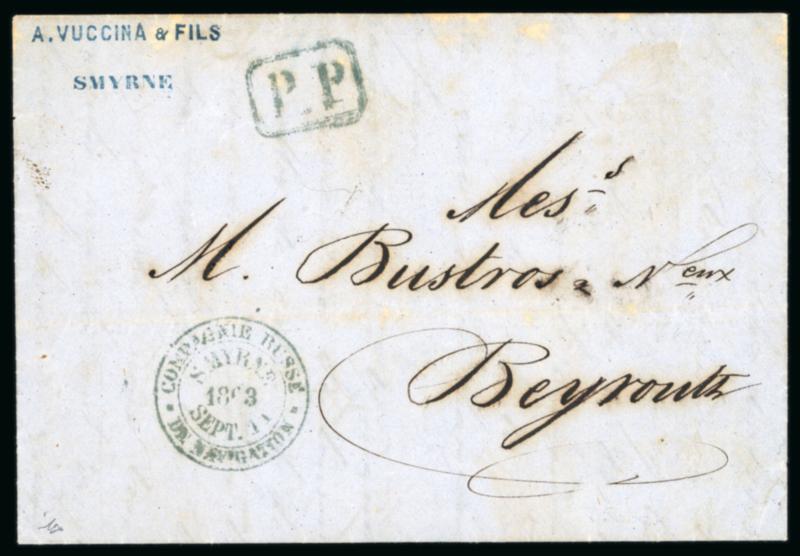 A. VUCCINA & FILS
SMYRNE
P.P
Mes.s
M. Bustros & N.eux
Beyrouth
COMPAGNIE RUSSE
SMYRNE
1863
SEPT. 11
DE NAVIGATION